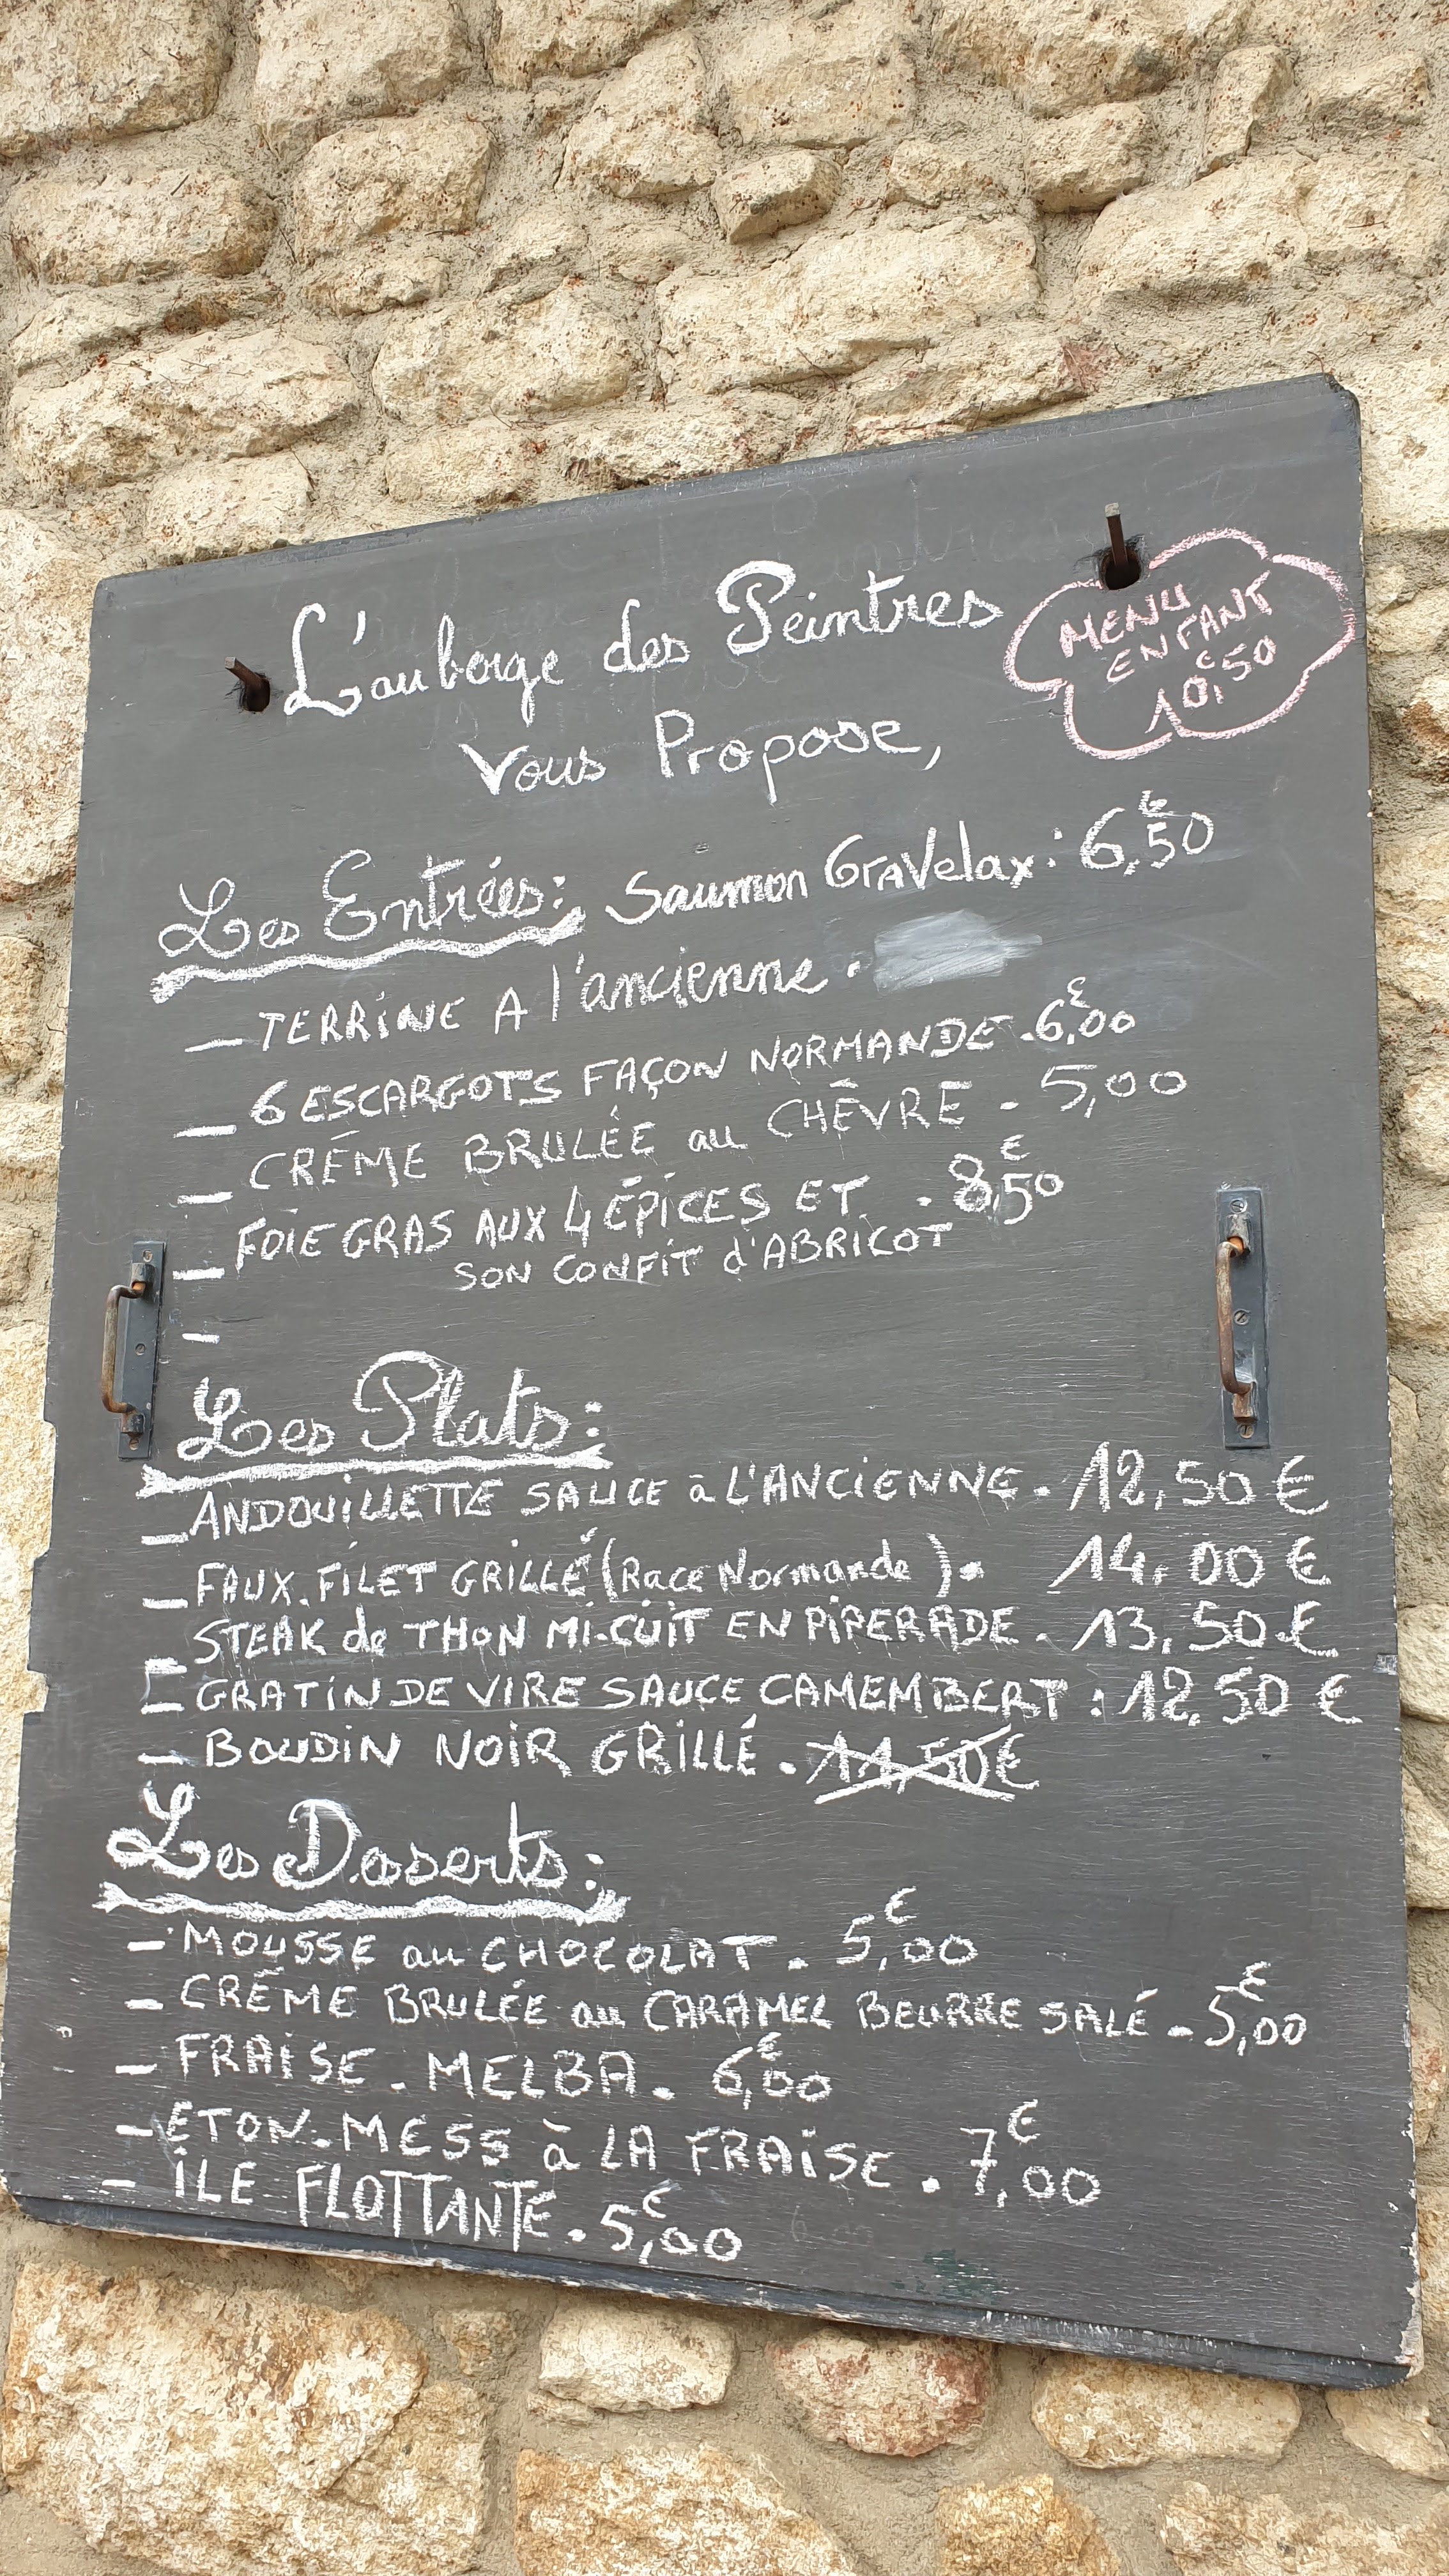 L'auberge des Peintres
Vous Propose,
MENU
ENFANT
10,€50
Les Entrées: Saumon Gravelax: 6,€50
- TERRINE A l'ancienne.
- 6 ESCARGOTS FAÇON NORMANDE. 6,€00
- CRÈME BRULÉE au CHÈVRE - 5,00
- FOIE GRAS AUX 4 ÉPICES ET. - 8,€50
SON CONFIT d'ABRICOT
-
Les Plats:
- ANDOUILLETTE SAUCE à L'ANCIENNE. 12,50 €
- FAUX.FILET GRILLÉ (Race Normande). 14,00 €
- STEAK de THON MI-CUIT EN PIPERADE. 13,50 €
- GRATIN DE VIRE SAUCE CAMEMBERT: 12,50 €
- BOUDIN NOIR GRILLÉ. 11,50€
Les Desserts:
- MOUSSE au CHOCOLAT. 5,€00
- CRÈME BRULÉE au CARAMEL BEURRE SALÉ - 5,€00
- FRAISE. MELBA. 6,€00
- ETON-MESS à LA FRAISE. 7,€00
- ÎLE FLOTTANTE. 5,€00